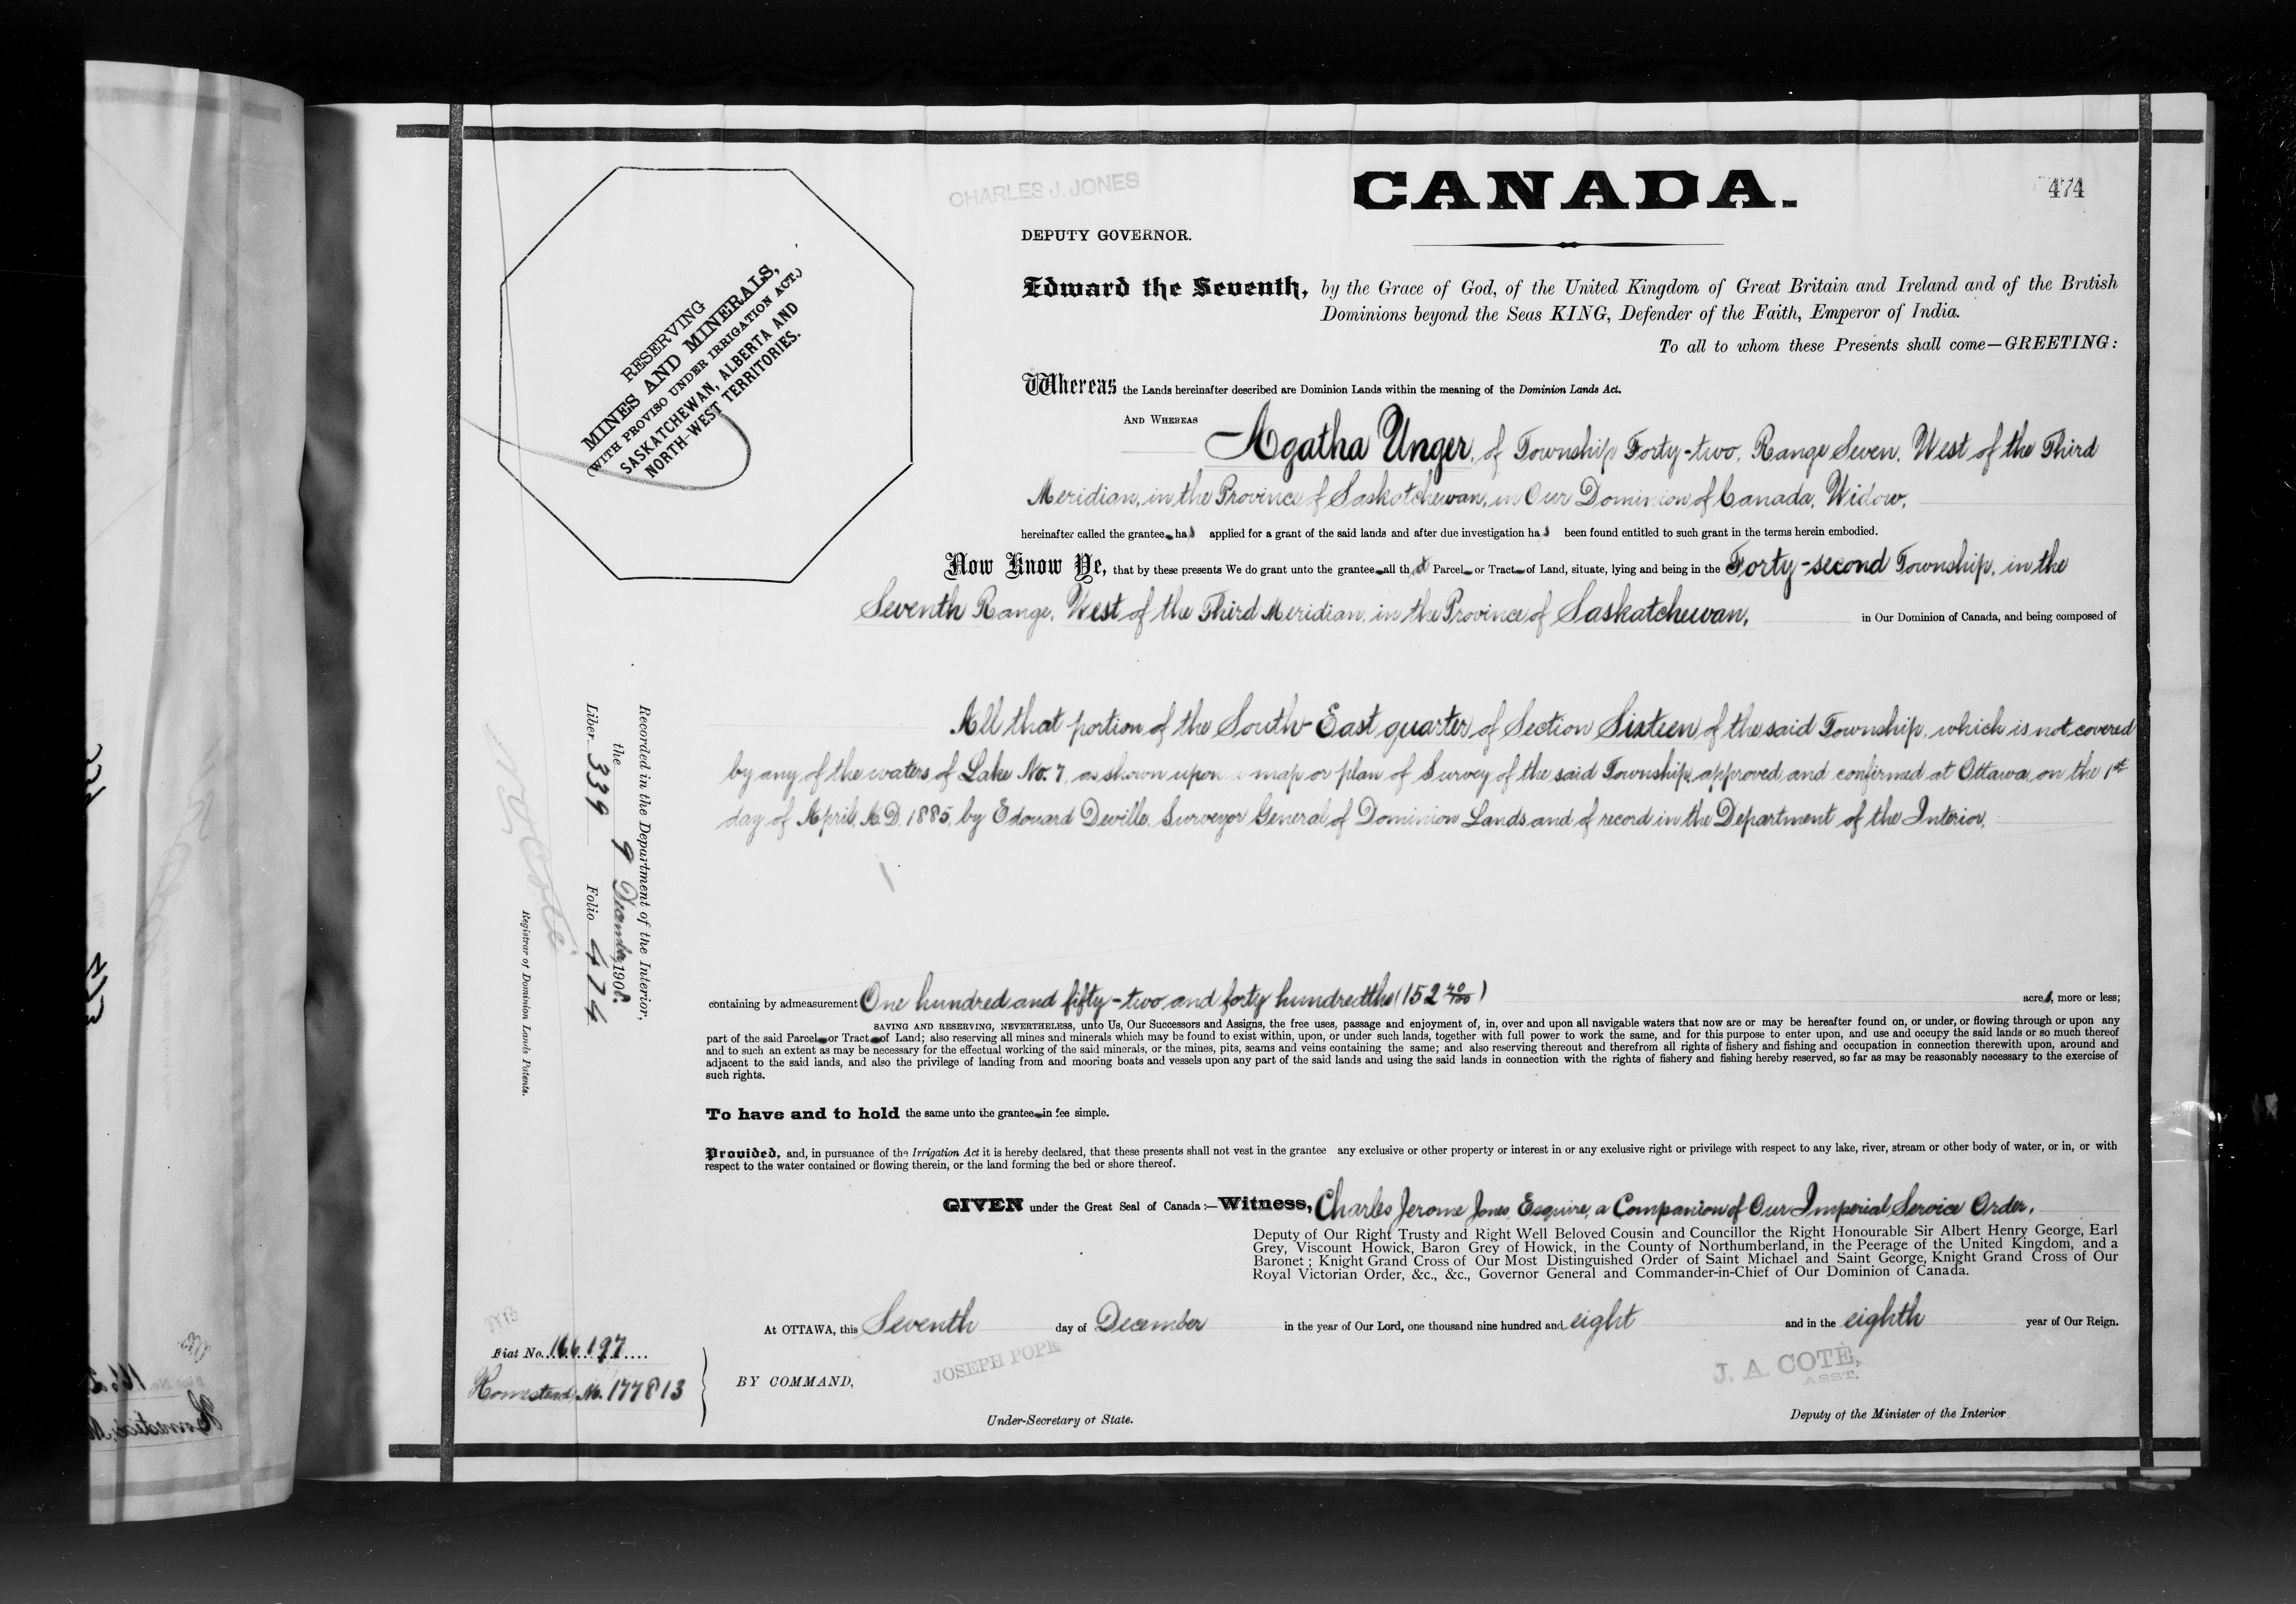 CHARLES J. JONES
CANADA.
474
DEPUTY GOVERNOR.
Edward the Seventh, by the Grace of God, of the United Kingdom of Great Britain and Ireland and of the British
Dominions beyond the Seas KING, Defender of the Faith, Emperor of India.
To all to whom these Presents shall come—GREETING:
RESERVING
MINES AND MINERALS,
(WITH PROVISO UNDER IRRIGATION ACT.)
SASKATCHEWAN, ALBERTA AND
NORTH-WEST TERRITORIES.
Whereas the Lands hereinafter described are Dominion Lands within the meaning of the Dominion Lands Act.
AND WHEREAS
Agatha Unger, of Township Forty-two, Range Seven, West of the Third
Meridian, in the Province of Saskatchewan, in Our Dominion of Canada, Widow,
hereinafter called the grantee has applied for a grant of the said lands and after due investigation has been found entitled to such grant in the terms herein embodied.
Now Know Ye, that by these presents We do grant unto the grantee all that Parcel or Tract of Land, situate, lying and being in the Forty-second Township, in the
Seventh Range, West of the Third Meridian, in the Province of Saskatchewan, in Our Dominion of Canada, and being composed of
All that portion of the South-East quarter of Section Sixteen of the said Township, which is not covered
by any of the waters of Lake No. 7, as shown upon a map or plan of Survey of the said Township, approved and confirmed at Ottawa, on the 1st
day of April, A.D. 1885, by Edouard Deville, Surveyor General of Dominion Lands and of record in the Department of the Interior,
Recorded in the Department of the Interior,
the 9 December, 1908.
Liber 339 Folio 474
N. O. Coté
Registrar of Dominion Lands Patents.
containing by admeasurement One hundred and fifty-two and forty hundredths (152 40/100) acres, more or less;
SAVING AND RESERVING, NEVERTHELESS, unto Us, Our Successors and Assigns, the free uses, passage and enjoyment of, in, over and upon all navigable waters that now are or may be hereafter found on, or under, or flowing through or upon any
part of the said Parcel or Tract of Land; also reserving all mines and minerals which may be found to exist within, upon, or under such lands, together with full power to work the same, and for this purpose to enter upon, and use and occupy the said lands or so much thereof
and to such an extent as may be necessary for the effectual working of the said minerals, or the mines, pits, seams and veins containing the same; and also reserving thereout and therefrom all rights of fishery and fishing and occupation in connection therewith upon, around and
adjacent to the said lands, and also the privilege of landing from and mooring boats and vessels upon any part of the said lands and using the said lands in connection with the rights of fishery and fishing hereby reserved, so far as may be reasonably necessary to the exercise of
such rights.
To have and to hold the same unto the grantee in fee simple.
Provided, and, in pursuance of the Irrigation Act it is hereby declared, that these presents shall not vest in the grantee any exclusive or other property or interest in or any exclusive right or privilege with respect to any lake, river, stream or other body of water, or in, or with
respect to the water contained or flowing therein, or the land forming the bed or shore thereof.
GIVEN under the Great Seal of Canada:—Witness, Charles Jerome Jones, Esquire, a Companion of Our Imperial Service Order,
Deputy of Our Right Trusty and Right Well Beloved Cousin and Councillor the Right Honourable Sir Albert Henry George, Earl
Grey, Viscount Howick, Baron Grey of Howick, in the County of Northumberland, in the Peerage of the United Kingdom, and a
Baronet; Knight Grand Cross of Our Most Distinguished Order of Saint Michael and Saint George, Knight Grand Cross of Our
Royal Victorian Order, &c., &c., Governor General and Commander-in-Chief of Our Dominion of Canada.
At OTTAWA, this Seventh day of December in the year of Our Lord, one thousand nine hundred and eight and in the eighth year of Our Reign.
Fiat No. 166197
Homestead, No. 177813
BY COMMAND,
JOSEPH POPE
Under-Secretary of State.
J. A. COTÉ,
ASST.
Deputy of the Minister of the Interior